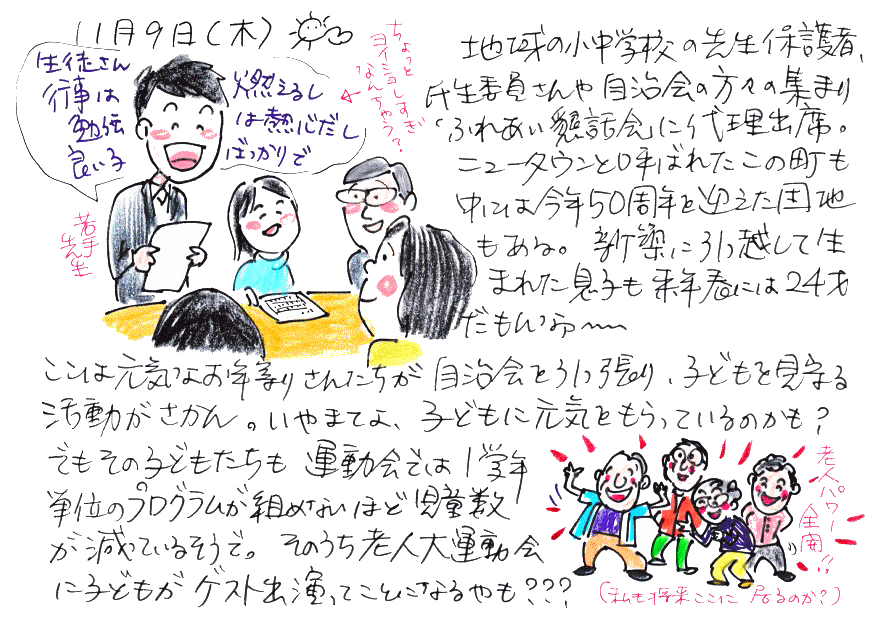 11月9日(木)
生徒さん
行事は
勉強
良い子
燃えるし
は熱心だし
ばっかりで
ちょっと
ヨイショしすぎ
なんちゃう?
若手
先生
地域の小中学校の先生、保護者、
民生委員さんや自治会の方々の集まり
「ふれあい懇話会」に代理出席。
ニュータウンと呼ばれたこの町も
中には今年50周年を迎えた団地
もある。新築に引っ越して生
まれた息子も来年春には24才
だもんなぁ〜
ここは元気なお年寄りさんたちが自治会を引っ張り、子どもを見守る
活動がさかん。いやまてよ、子どもに元気をもらっているのかも?
でもその子どもたちも運動会では1学年
単位のプログラムが組めないほど児童数
が減っているそうで。そのうち老人大運動会
に子どもがゲスト出演ってことになるやも???
老人パワー
全開!!
(私も将来ここに居るのか?)